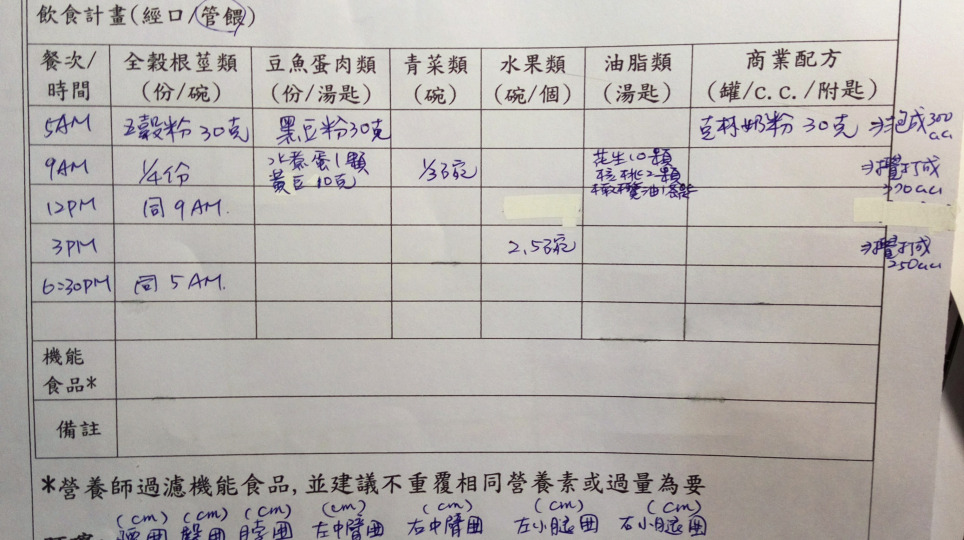 飲食計畫(經口/管餵)
餐次/時間 全穀根莖類(份/碗) 豆魚蛋肉類(份/湯匙) 青菜類(碗) 水果類(碗/個) 油脂類(湯匙) 商業配方(罐/c.c./附匙)
5AM 五穀粉 30克 黑豆粉30克 奶粉 30克 →泡成300cc
9AM 1/4份 水煮蛋1顆 黃豆10克 1/3碗 花生10顆 核桃2顆 橄欖油1 →攪打成
12PM 同 9AM.
3PM 2.5碗 →攪打成250cc
6:30PM 同 5AM.
機能食品*
備註
*營養師過濾機能食品,並建議不重覆相同營養素或過量為要
(cm) (cm) (cm) (cm) (cm) (cm) (cm)
腰圍 臀圍 脖圍 左中臂圍 右中臂圍 左小腿圍 右小腿圍